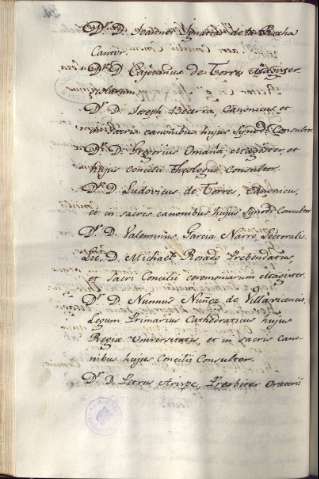 Dr. D. Ioannes Ignatius de la Rocha
Cantor.
Dr. D. Cajetanus de Torres Magister
scolarum.
Dr. D. Joseph Becerra, Canonicus et
in sacris canonibus hujus Synodi Consultor
Dr. D. Gregorius Omaña, Magister et
hujus concilii Theologus Consultor.
Dr. D. Ludovicus de Torres Canonicus,
et in sacris canonibus hujus Synodi Consultor
Dr. D. Valentinus Garcia Narro, Lectoralis.
Lic. D. Michael Prebendarius
et Sacri Concilii ceremoniarum Magister.
Dr. D. Nunnus Nuñez de Villavicencio,
Legum Primarius Cathedraticus hujus
Regiæ Universitatis, et in sacris cano-
nibus hujus Concilii Consultor.
Dr. D. Petrus Presbiter Oratorii